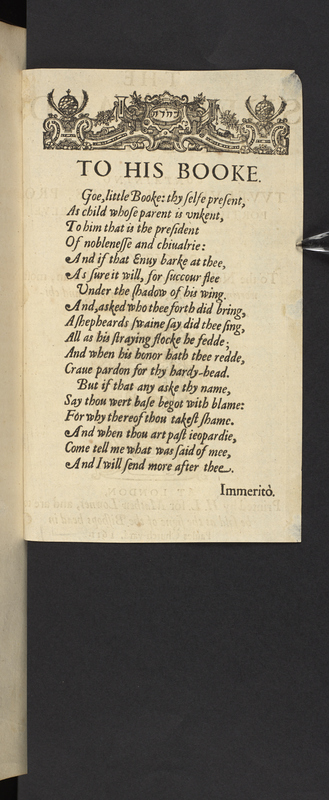 TO HIS BOOKE.
Goe, little Booke: thy selfe present,
As child whose parent is vnkent,
To him that is the president
Of noblenesse and chiualrie:
And if that Enuy barke at thee,
As sure it will, for succour flee
Vnder the shadow of his wing.
And, asked who thee forth did bring,
A shepheards swaine say did thee sing,
All as his straying flocke he fedde;
And when his honor hath thee redde,
Craue pardon for thy hardy-head.
But if that any aske thy name,
Say thou wert base begot with blame:
For why thereof thou takest shame.
And when thou art past ieopardie,
Come tell me what was said of mee,
And I will send more after thee.
Immeritò.